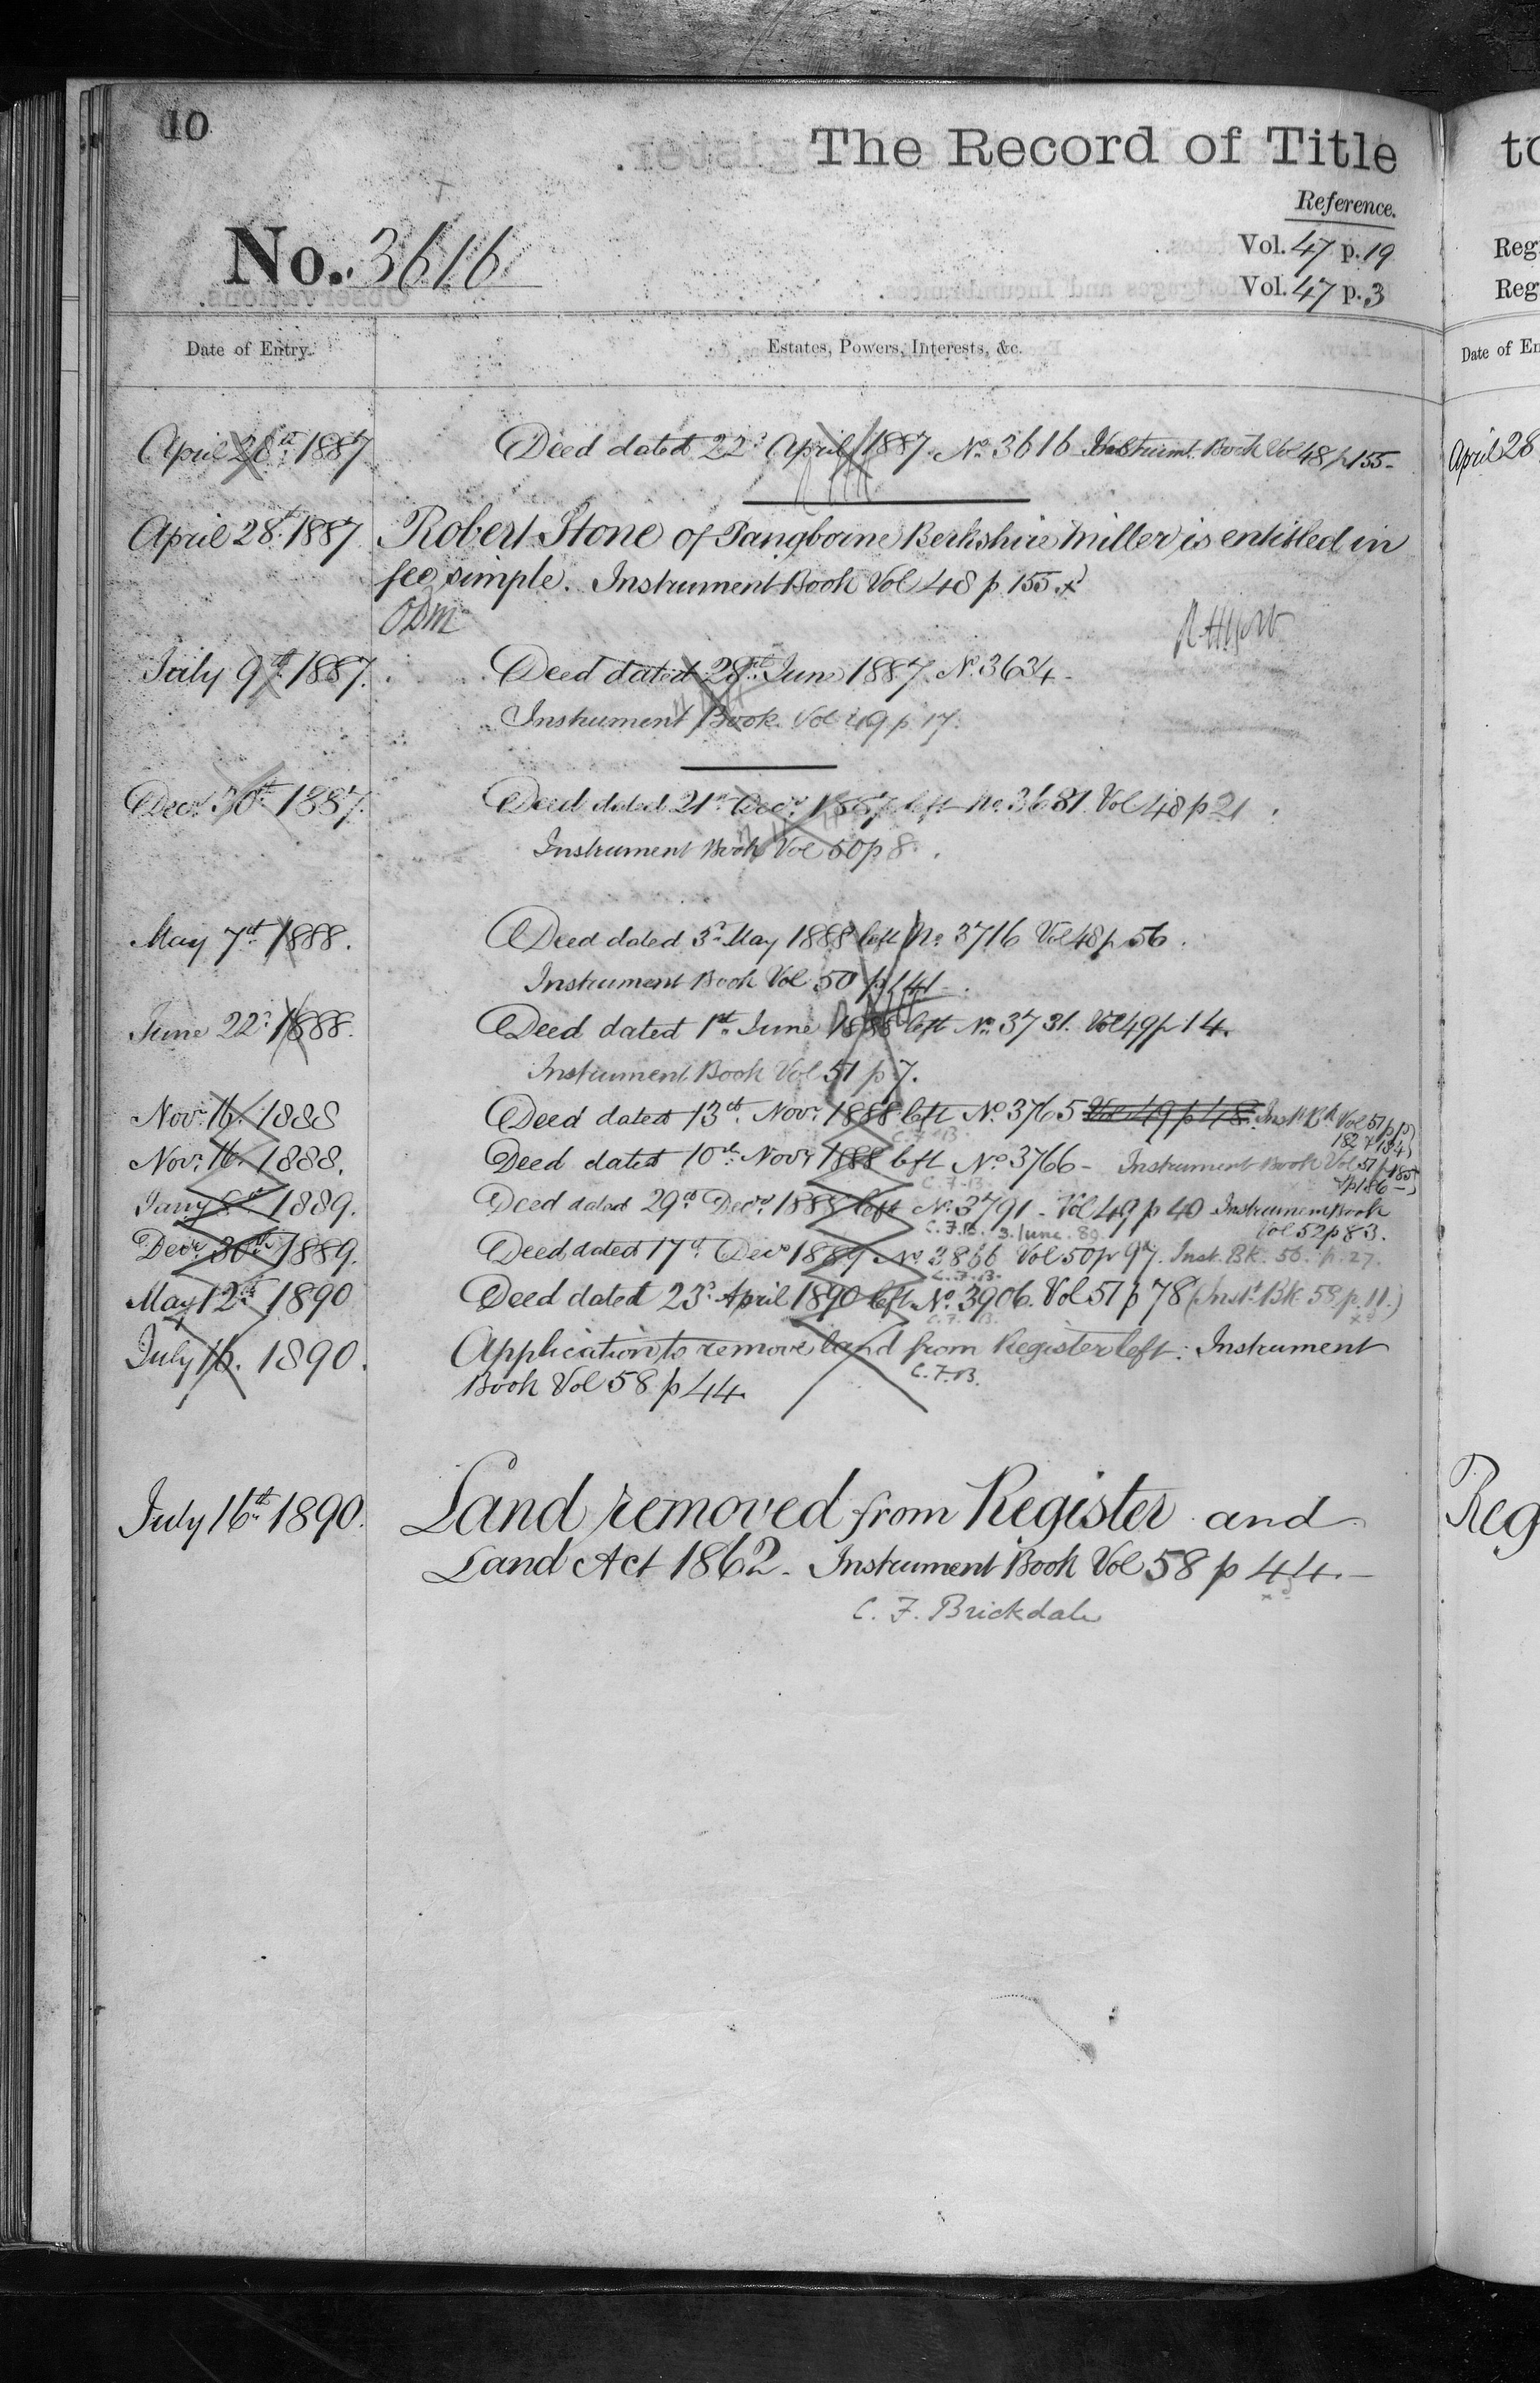 10
The Record of Title
Reference.
No. 3616
Vol. 47 p. 19
Vol. 47 p. 3
Date of Entry.
Estates, Powers, Interests, &c.
April 28th 1887
Deed dated 22d April 1887. No. 3616 Instrumt. Book Vol 48 p 155-
April 28th 1887
Robert Stone of Pangborne Berkshire Miller is entitled in
fee simple. Instrument Book Vol 48 p 155. x
July 9th 1887.
Deed dated 28th June 1887. No. 3634-
Instrument Book Vol 49 p 17.
Decr. 30th 1887.
Deed dated 21st Decr. 1887 left No. 3681. Vol 48 p 21
Instrument Book Vol 50 p 8.
May 7th 1888.
Deed dated 3d May 1888 left No. 3716 Vol 48 p 56.
Instrument Book Vol 50 p 141-
June 22d 1888.
Deed dated 1st June 1888 left No. 3731. Vol 49 p 14.
Instrument Book Vol 51 p 7.
Novr. 16. 1888
Deed dated 13th Novr. 1888 left No. 3765 Vol 49 p 48. Inst. Bk Vol 51 pp
182 & 184)
C.F.B.
Novr. 16. 1888.
Deed dated 10th Novr. 1888 left No. 3766- Instrument Book Vol 51 p 185
& p 186-)
C.F.B.
Jany 8th 1889.
Deed dated 29th Decr. 1888 left No. 3791- Vol 49 p 40 Instrument Book
Vol 52 p 83.
C.F.B. 3. June. 89.
Decr. 30th 1889.
Deed dated 17th Decr 1889 No. 3866 Vol 50 p 97. Inst. Bk. 56. p. 27.
C.F.B.
May 12th 1890
Deed dated 23d April 1890 left No. 3906. Vol 51 p 78 (Inst. Bk 58 p. 11.)
C.F.B.
July 16. 1890.
Application to remove land from Register left: Instrument
Book Vol 58 p 44.
C.F.B.
July 16th 1890.
Land removed from Register and
Land Act 1862. Instrument Book Vol 58 p 44.-
C. F. Brickdale
to
Reg
Reg
Date of En
April 28
Reg